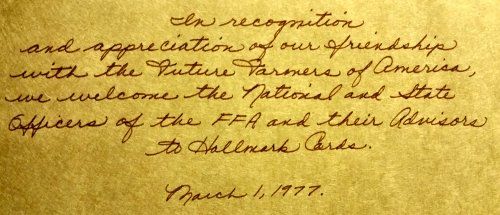 In recognition
and appreciation of our friendship
with the Future Farmers of America,
we welcome the National and State
Officers of the FFA and their Advisors
to Hallmark Cards.
March 1, 1977.